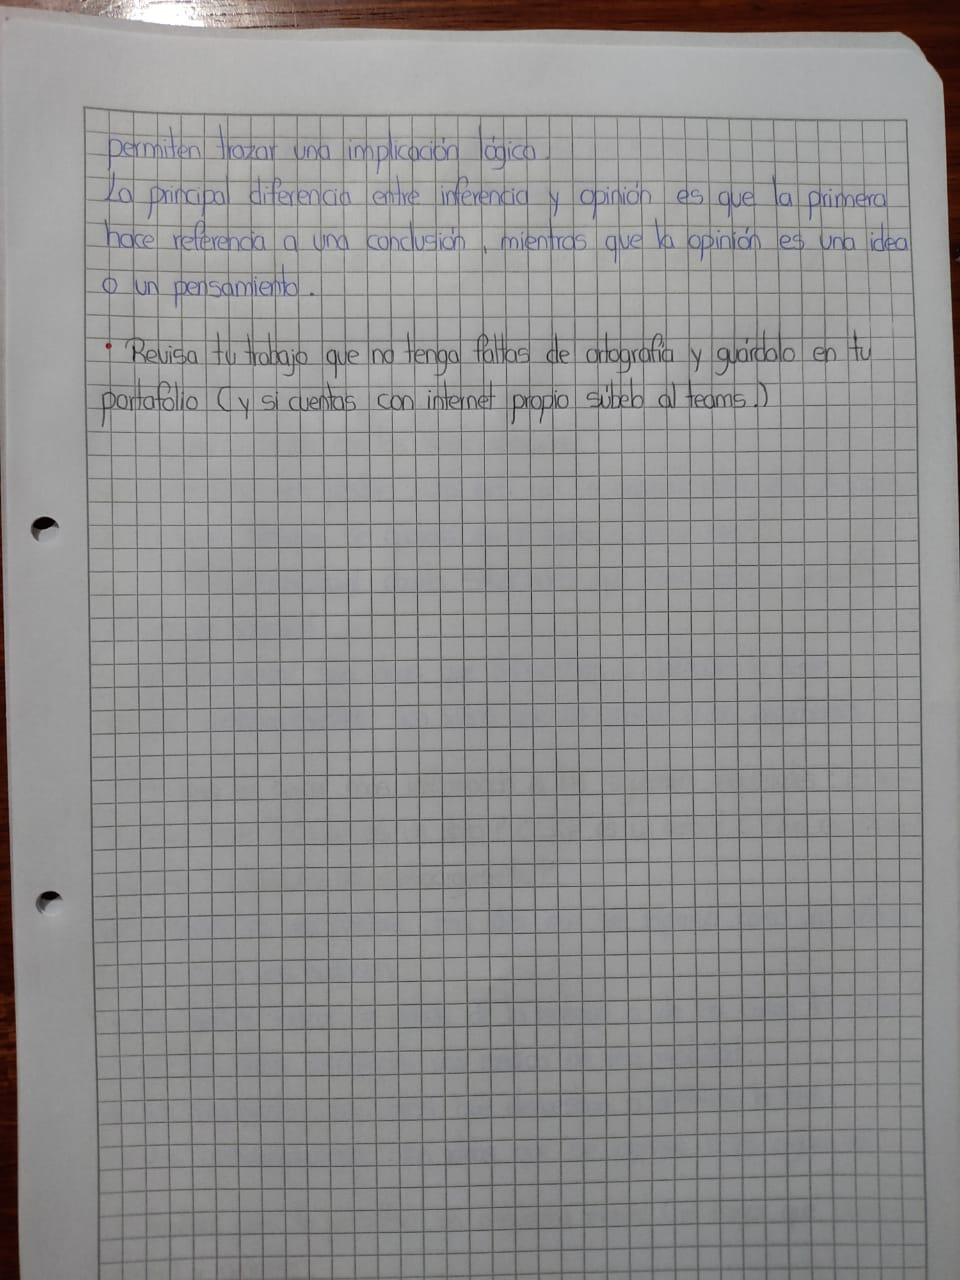 permiten trazar una implicación lógica.
La principal diferencia entre inferencia y opinión es que la primera
hace referencia a una conclusión, mientras que la opinión es una idea
o un pensamiento.
• Revisa tu trabajo que no tenga faltas de ortografía y guárdalo en tu
portafólio (y si cuentas con internet propio súbelo al teams.)